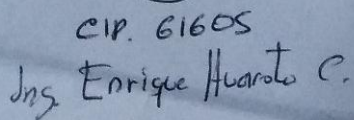 CIP. 61605
Ing. Enrique Huaroto C.